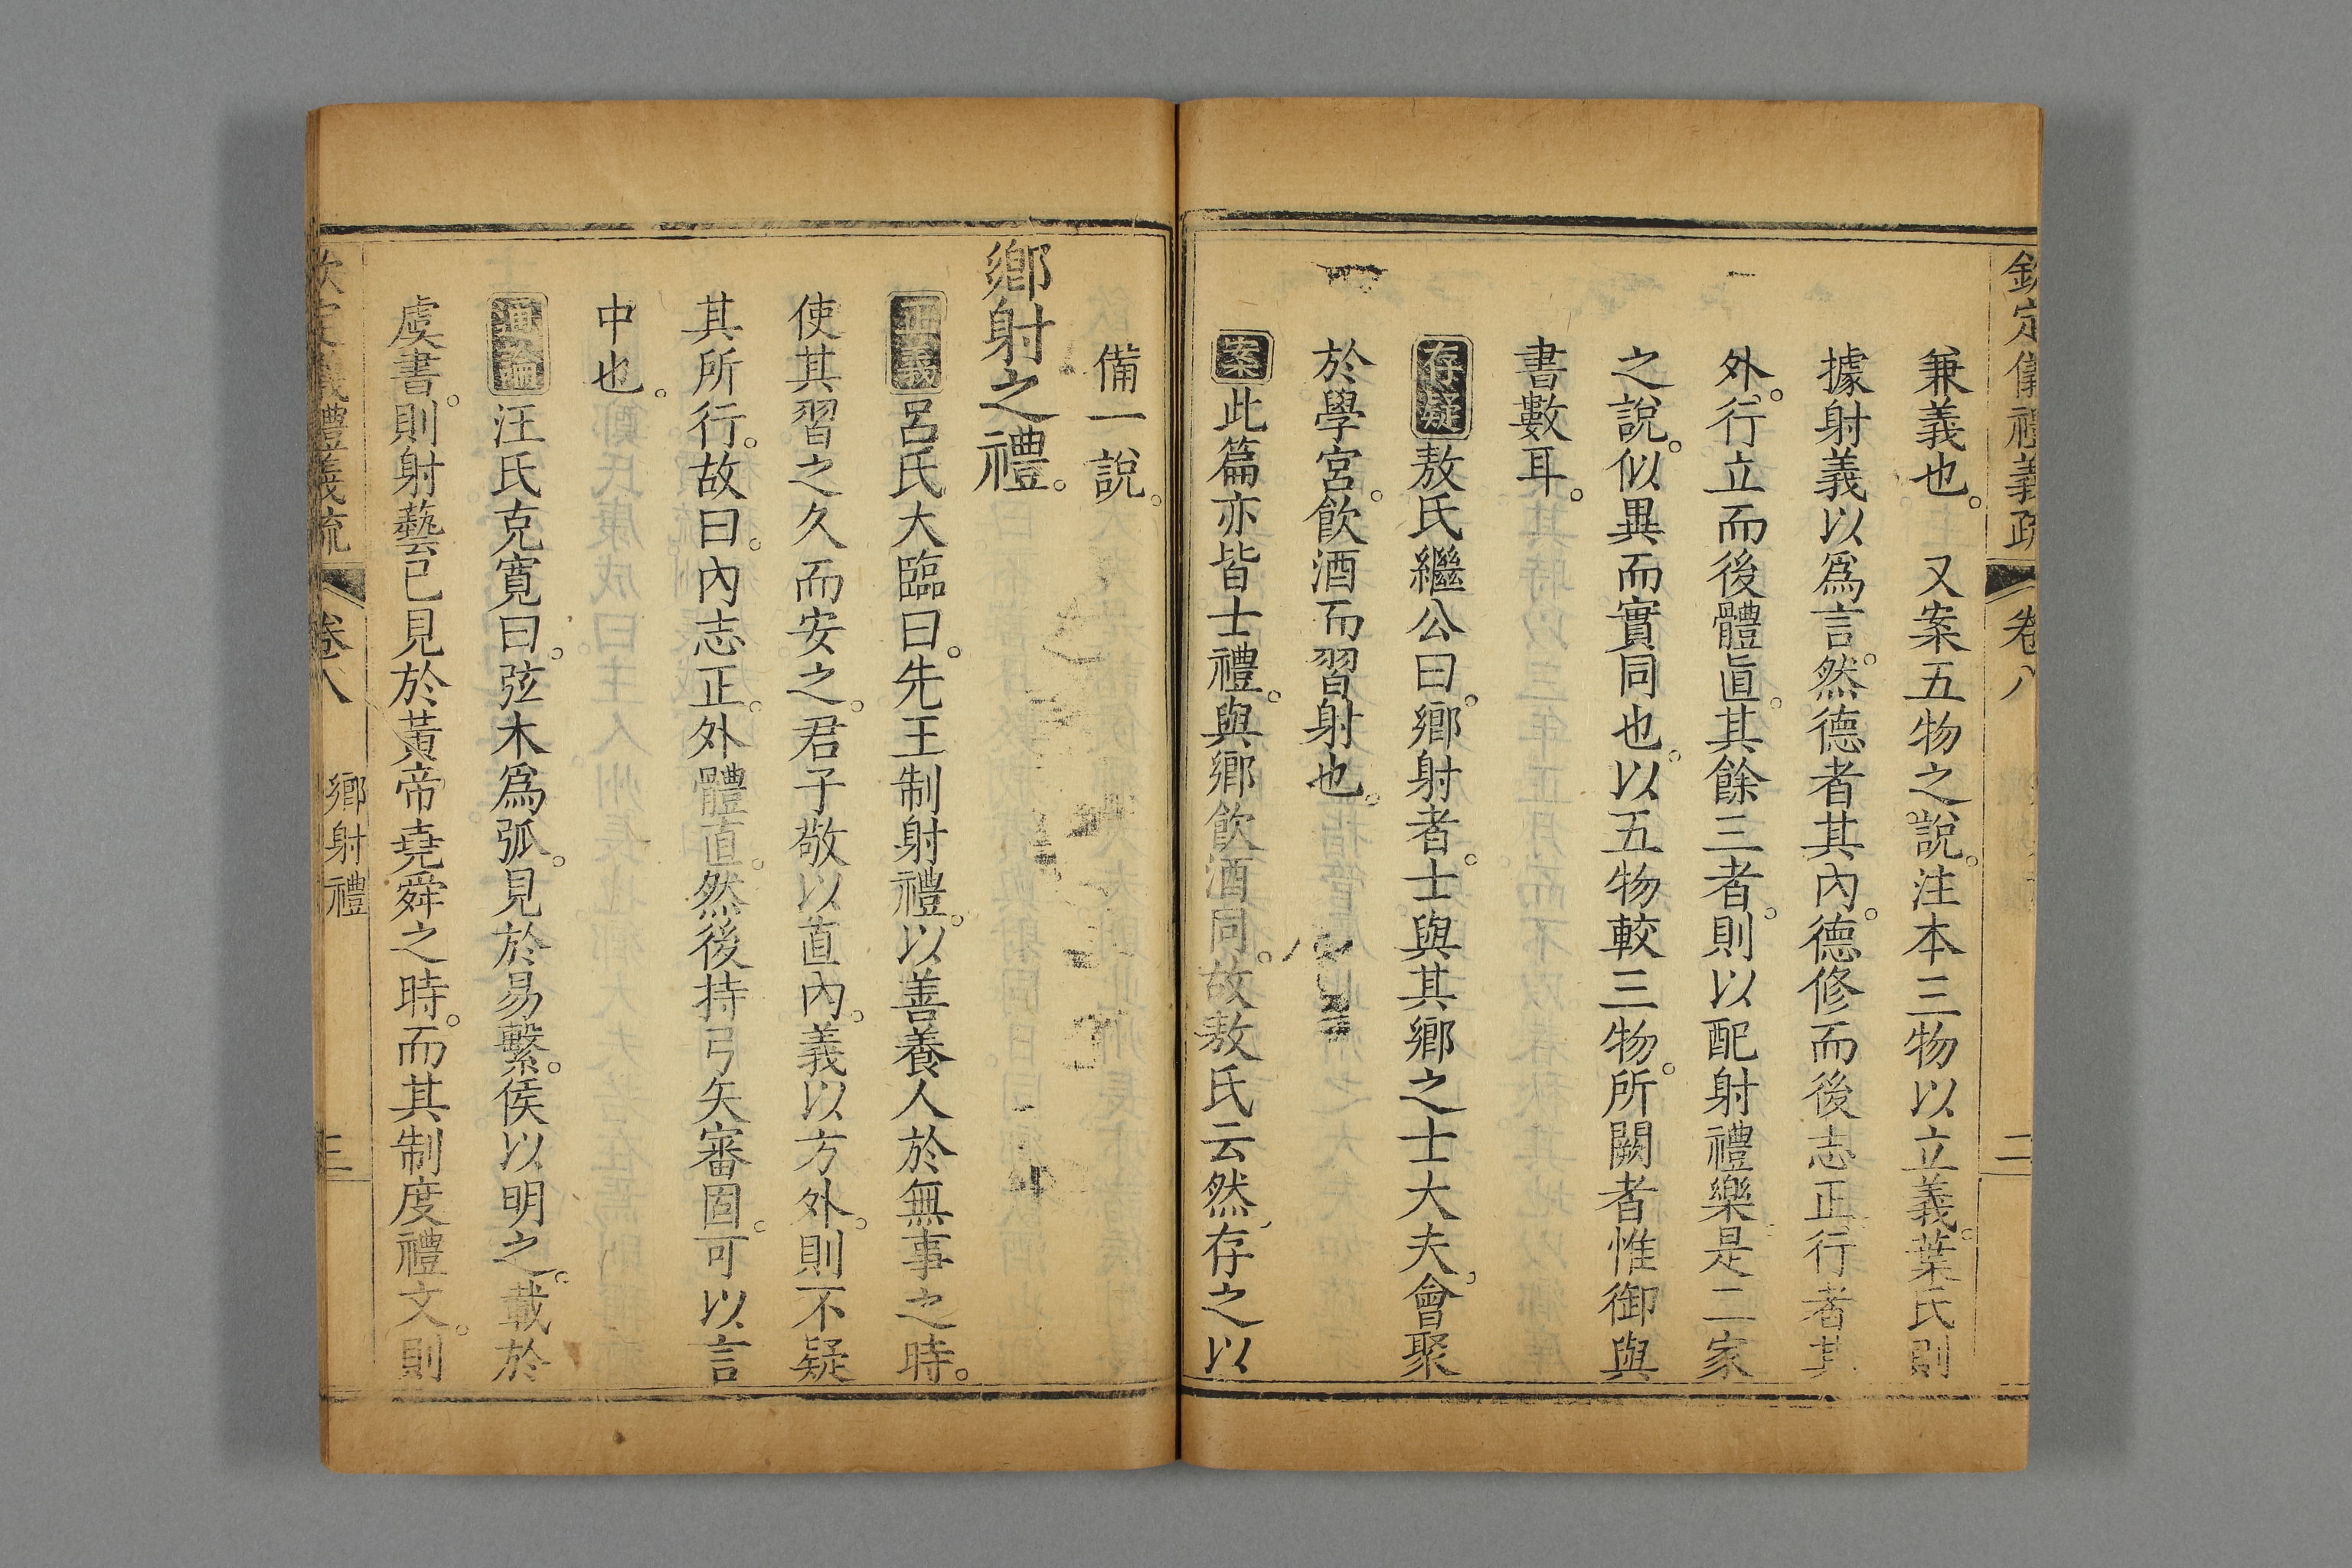 欽定儀禮義疏 卷八 二
兼義也。 又案五物之說。注本三物以立義。葉氏則
據射義以為言。然德者其內。德修而後志正。行者其
外。行立而後體直。其餘三者。則以配射禮樂。是二家
之說。似異而實同也。以五物較三物。所闕者惟御與
書數耳。
存疑 敖氏繼公曰。鄉射者。士與其鄉之士大夫會聚
於學宮。飲酒而習射也。
案 此篇亦皆士禮。與鄉飲酒同。故敖氏云然。存之以
備一說。
鄉射之禮。
正義 呂氏大臨曰。先王制射禮。以善養人於無事之時。
使其習之久而安之。君子敬以直內。義以方外。則不疑
其所行。故曰。內志正。外體直。然後持弓矢審固。可以言
中也。
通論 汪氏克寬曰。弦木為弧。見於易繫。侯以明之。載於
虞書。則射藝已見於黃帝堯舜之時。而其制度禮文。則
欽定儀禮義疏 卷八 鄉射禮 三